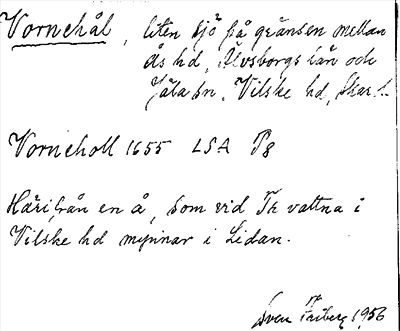 Vornehål, liten sjö på gränsen mellan
Ås hd, Älvsborgs län och
Jäla sn, Vilske hd, Skar. l.
Vorneholl 1655 LSA P8
Härifrån en å, som vid Tr vattna i
Vilske hd mynnar i Lidan.
Sven Friberg 1956